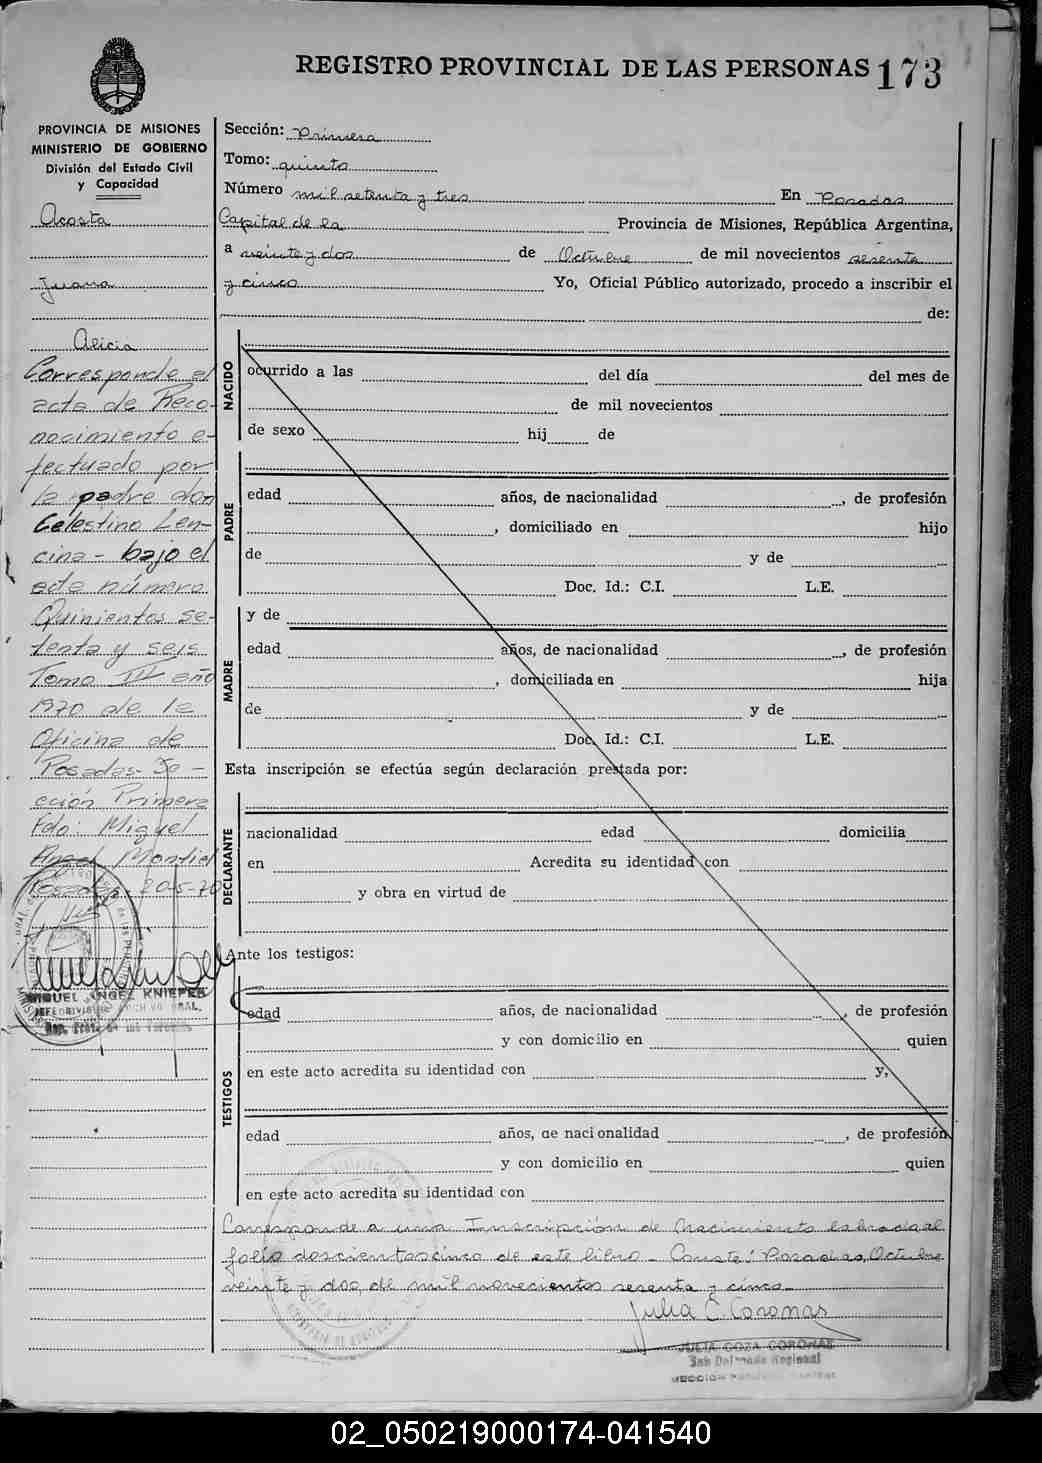 REGISTRO PROVINCIAL DE LAS PERSONAS 173
PROVINCIA DE MISIONES
MINISTERIO DE GOBIERNO
División del Estado Civil
y Capacidad
Acosta
Juana
Alicia
Corresponde al
acta de Reco-
nocimiento e-
fectuado por
le padre don
Celestino Len-
cina - bajo el
acta número
Quinientos se-
tenta y seis
Tomo IV año
1970 de la
Oficina de
Posadas - Se-
cción Primera
Fdo: Miguel
Angel Montiel
Posadas. 20-5-70
MIGUEL ANGEL KNIEPER
Sección: Primera
Tomo: quinto
Número mil setenta y tres En Posadas
Capital de la Provincia de Misiones, República Argentina,
a veinte y dos de Octubre de mil novecientos sesenta
y cinco Yo, Oficial Público autorizado, procedo a inscribir el
de:
NACIDO
ocurrido a las del día del mes de
de mil novecientos
de sexo hij de
PADRE
edad años, de nacionalidad , de profesión
, domiciliado en hijo
de y de
Doc. Id.: C.I. L.E.
MADRE
y de
edad años, de nacionalidad , de profesión
, domiciliada en hija
de y de
Doc. Id.: C.I. L.E.
Esta inscripción se efectúa según declaración prestada por:
DECLARANTE
nacionalidad edad domicilia
en Acredita su identidad con
y obra en virtud de
Ante los testigos:
TESTIGOS
edad años, de nacionalidad , de profesión
y con domicilio en quien
en este acto acredita su identidad con y,
edad años, de nacionalidad , de profesión
y con domicilio en quien
en este acto acredita su identidad con
Corresponde a una Inscripción de Nacimiento labrada al
folio doscientos cinco de este libro - Conste: Posadas, Octubre
veinte y dos, de mil novecientos sesenta y cinco -
Julia C. Coronas
JULIA COZA CORONAS
Sub Delegada Regional
02_050219000174-041540